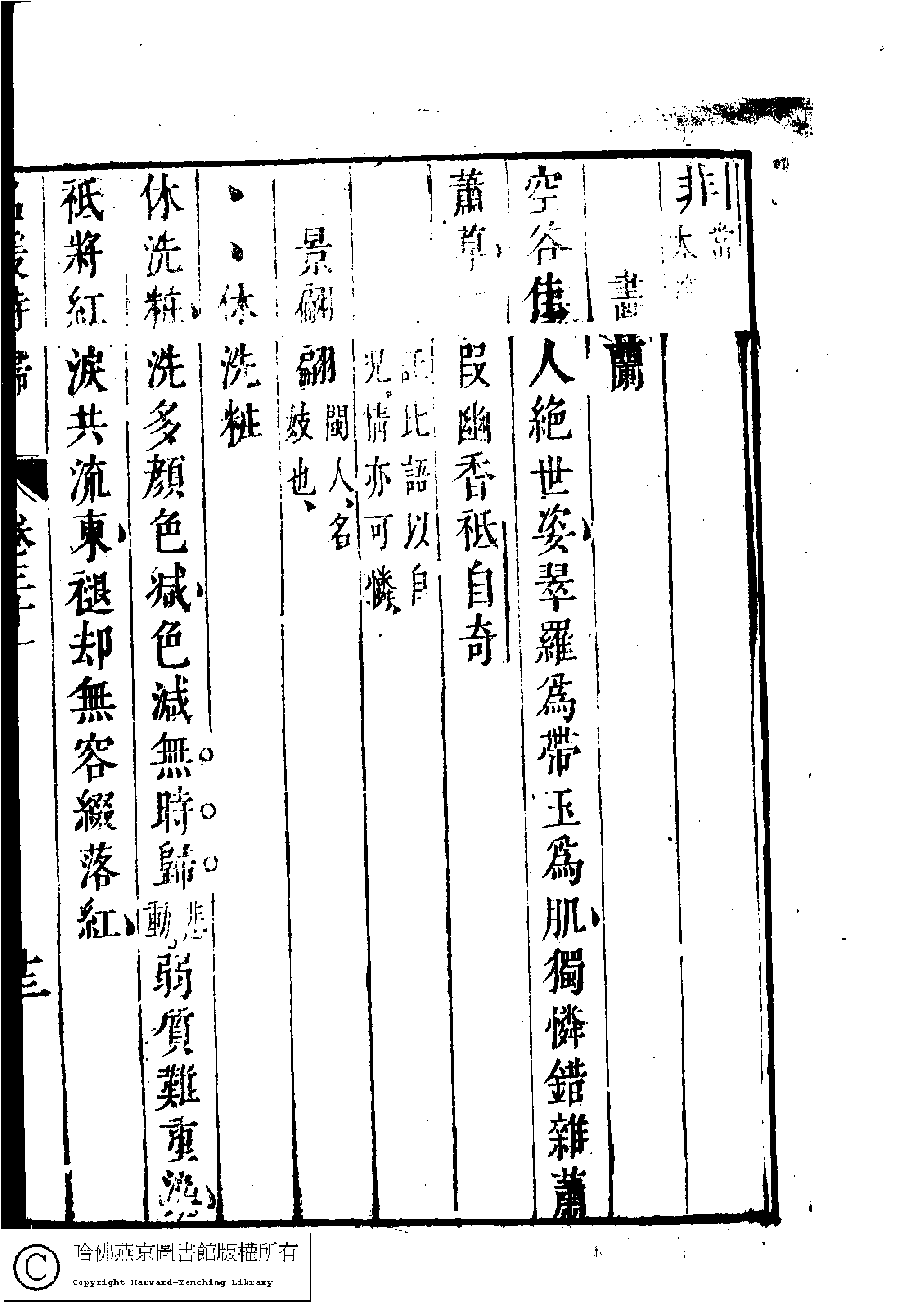 非 當太
畫蘭
空谷佳人絶世姿翠羅為帶玉為肌獨憐錯雜蕭
蕭草一段幽香祗自奇
比語以自
況情亦可憐
景翩翩 閩人名
妓也
休洗粧
休洗粧洗多顔色減色減無時歸 悲動 弱質難重染
祗將紅淚共流東褪却無容綴落紅
名媛詩歸
卷三十一
十三
哈佛燕京圖書館版權所有
Copyright Harvard-Yenching Library